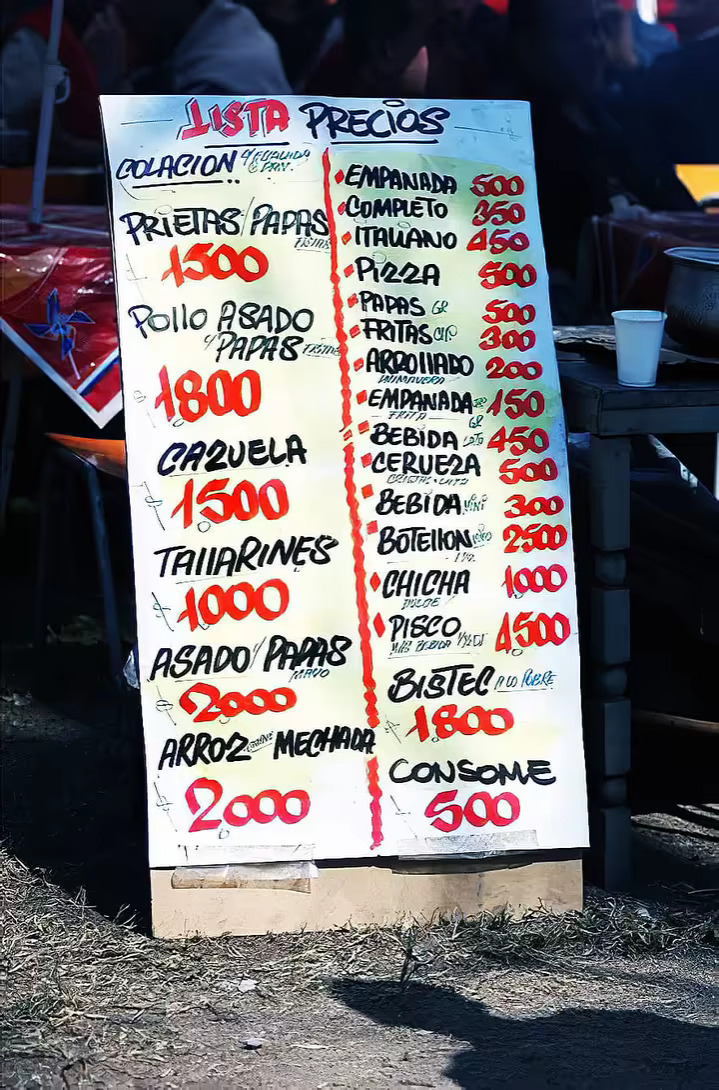 LISTA PRECIOS
COLACION Y ENSALADA
PAN.
PRIETAS/PAPAS
FRITAS
1500
POllO ASADO
Y PAPAS FRITAS
1800
CAZUELA
1500
TAllARINES
1000
ASADO Y PAPAS
MAYO
2000
ARROZ CARNE MECHADA
2000
EMPANADA 500
COMPLETO 350
ITALIANO 450
PIZZA 500
PAPAS GR 500
FRITAS 300
ARROllADO 200
PRIMAVERA
EMPANADA 150
FRITA
BEBIDA 450
CERVEZA 500
BEBIDA MINI 300
BOTEllON 2500
CHICHA 1000
DULCE
PISCO 4500
MAS BEBIDA
BISTEC A LO POBRE
1800
CONSOME
500